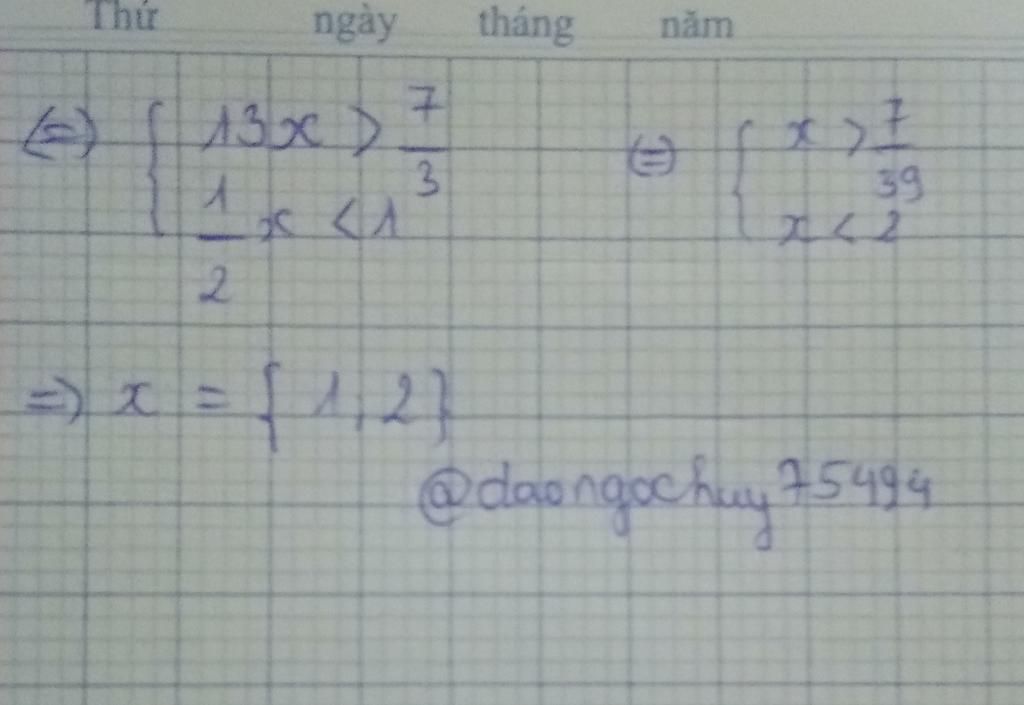 Thứ ngày tháng năm
(=) { 13x > 7/3 (=) { x > 7/39
1/2 x < 1 x < 2
=) x = { 1, 2 }
@daongochuy75494